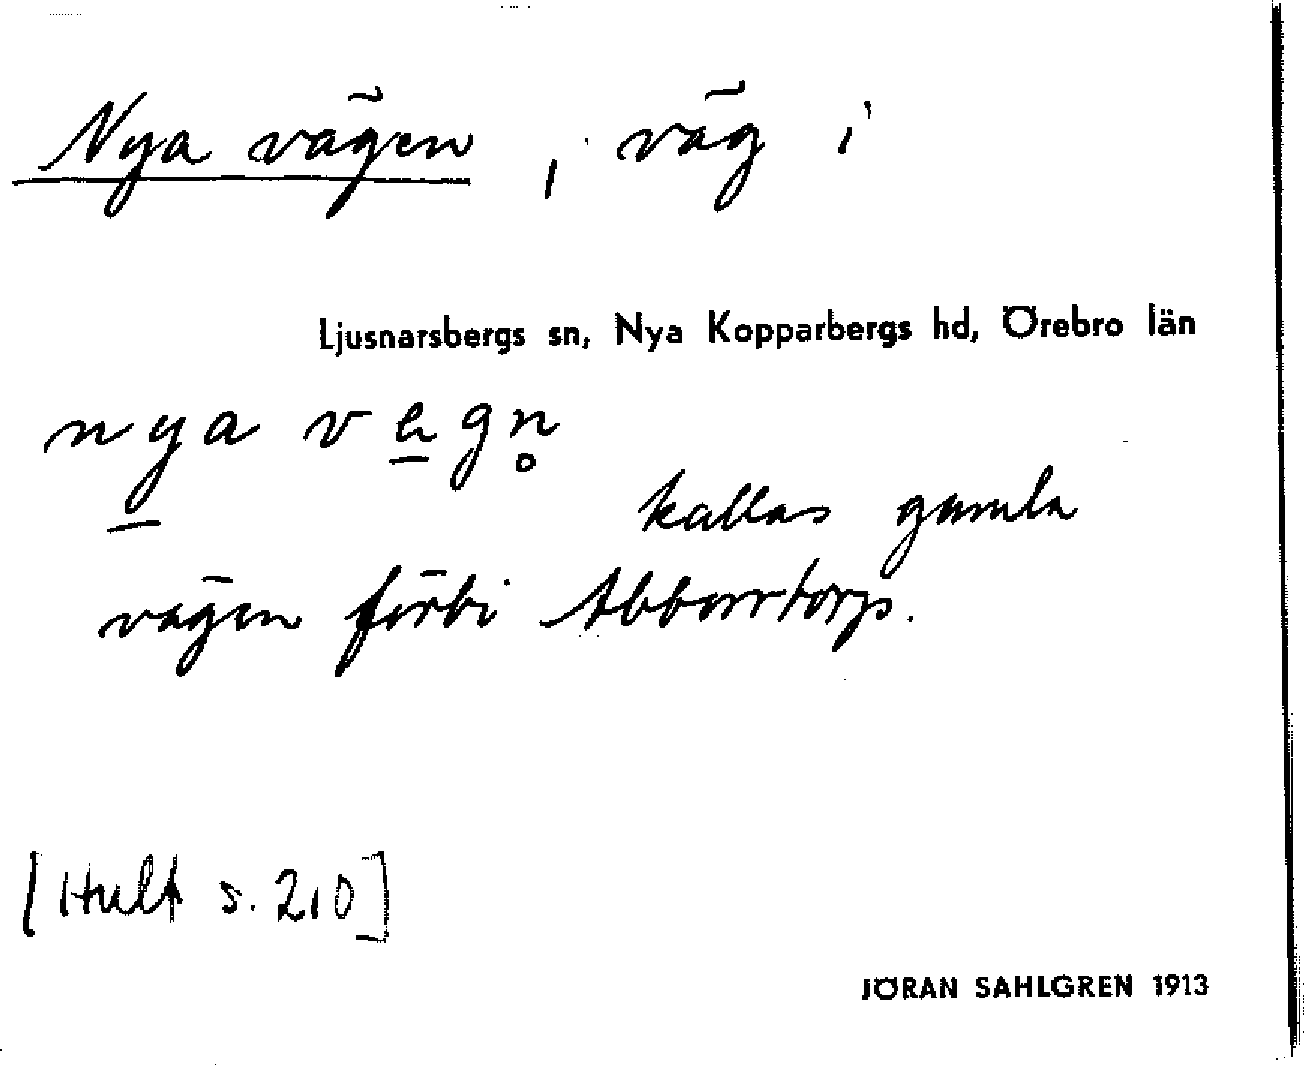 Nya vägen, väg i
Ljusnarsbergs sn, Nya Kopparbergs hd, Örebro län
nya vægn̥
kallas gamla
vägen förbi Abborrtorp.
[Hult s. 210]
JÖRAN SAHLGREN 1913